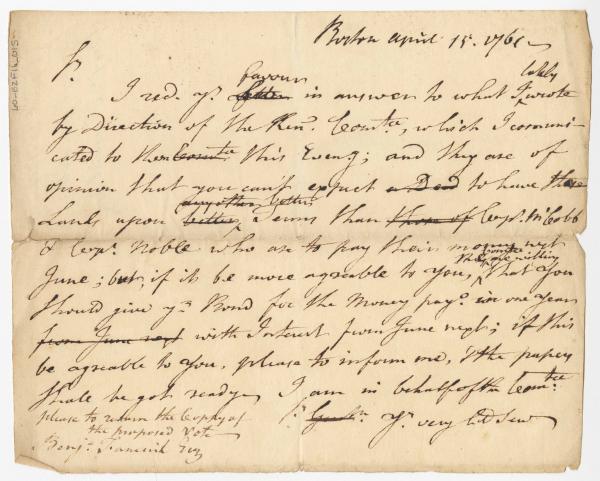 Boston April 15. 1761
Sr.
favour lately
I recd. yr. letter in answer to what I wrote
by Direction of the Kenn. Comtee, which I communi-
cated to the Comtee this Eveng; and they are of
opinion that you can't expect a Deed to have these
any other better
Lands upon better Terms than those of Capt. McCobb
& Capt. Noble who are to pay their money next
Comtee are willing
June; but if it be more agreeable to You, that You
should give yr. Bond for the Money paye. in one Year
from June next with Interest from June next; if this
be agreeable to You, please to inform me, & the papers
shall be got ready. I am in behalf of the Comtee
please to return the Copy of Sr. yr. very
the proposed Vote
Benja.